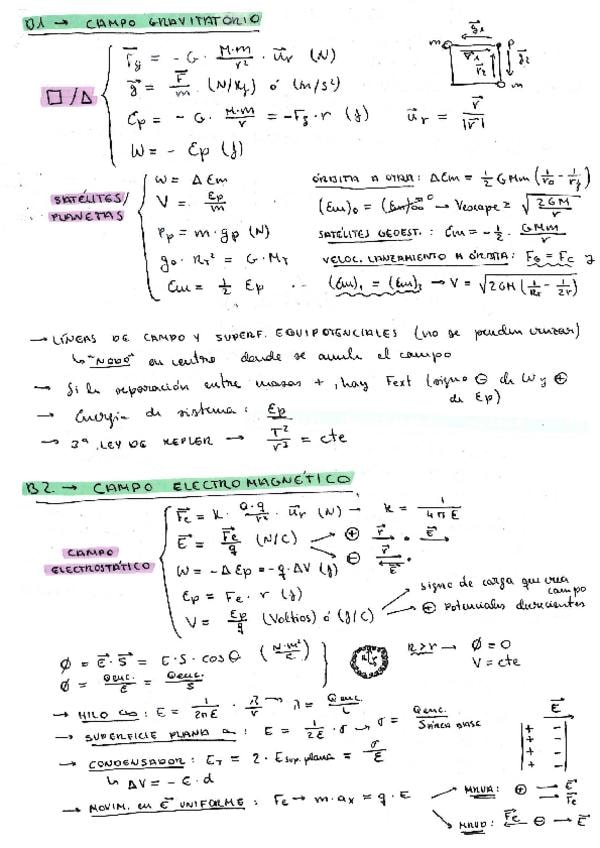 B1 → CAMPO GRAVITATORIO
□/Δ
F⃗g = - G · M·m/r² · u⃗r (N)
g⃗ = F⃗/m (N/Kg) ó (m/s²)
Ep = - G · M·m/r = - Fg · r (J)
W = - Ep (J)
u⃗r = r⃗/|r⃗|
m g⃗1 P r⃗1 r⃗2 g⃗2 m
SATÉLITES/PLANETAS
W = ΔEm
V = Ep/m
Pp = m · gp (N)
g0 · RT² = G · MT
Em = 1/2 Ep
ÓRBITA A OTRA: ΔEm = 1/2 GMm (1/r0 - 1/rf)
(Em)0 = (Em)∞ 0 → Vescape = √(2GM/r)
SATÉLITES GEOEST.: Em = - 1/2 · GMm/r
VELOC. LANZAMIENTO A ÓRBITA: FG = FC y
(Em)1 = (Em)2 → V = √(2GM(1/RT - 1/2r))
→ LÍNEAS DE CAMPO Y SUPERF. EQUIPOTENCIALES (no se pueden cruzar)
↳ "NODO" en centro donde se anula el campo
→ Si la separación entre masas +, hay Fext (signo ⊖ de W y ⊕ de Ep)
→ Energía de sistema: Ep
→ 3ª LEY DE KEPLER → T²/r³ = cte
B2. → CAMPO ELECTROMAGNÉTICO
CAMPO ELECTROSTÁTICO
F⃗e = K · Q·q/r² · u⃗r (N) → K = 1/4πε
E⃗ = F⃗e/q (N/C)
⊕ r⃗ · E⃗
⊖ r⃗ · E⃗
W = - ΔEp = - q · ΔV (J)
Ep = Fe · r (J)
V = Ep/q (Voltios) ó (J/C)
signo de carga que crea campo
⊕ potenciales decrecientes
Ø = E⃗ · S⃗ = E · S · cosθ (N·m²/C)
Ø = Qenc./ε = Qenc/
R > r → Ø = 0
V = cte
→ HILO ∞: E = 1/2πε · λ/r → λ = Qenc/L
→ SUPERFICIE PLANA ∞: E = 1/2ε · σ → σ = Qenc/
→ CONDENSADOR: ET = 2 · Esup. plana = σ/ε
↳ ΔV = - E · d
E⃗
+ -
+ -
+ -
+ -
→ MOVIM. en E⃗ UNIFORME: Fe → m · ax = q · E
MRUA: ⊕ → E⃗ F⃗e
MRUD: F⃗e ← ⊖ → E⃗